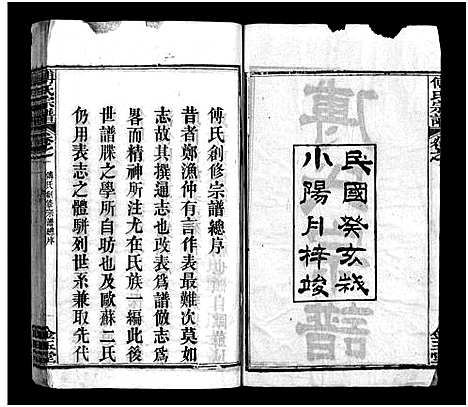 民國癸亥歲
小陽月梓竣
傅氏宗譜
傅氏創修宗譜總序
昔者鄭漁仲有言作表最難次莫如
志故其撰通志也改表為譜倣志為
畧而精神所注尤在氏族一編此後
世譜牒之學所自昉也及歐蘇二氏
仍用表志之體駢列世系兼取先代
傅氏宗譜
傅氏創修宗譜總序